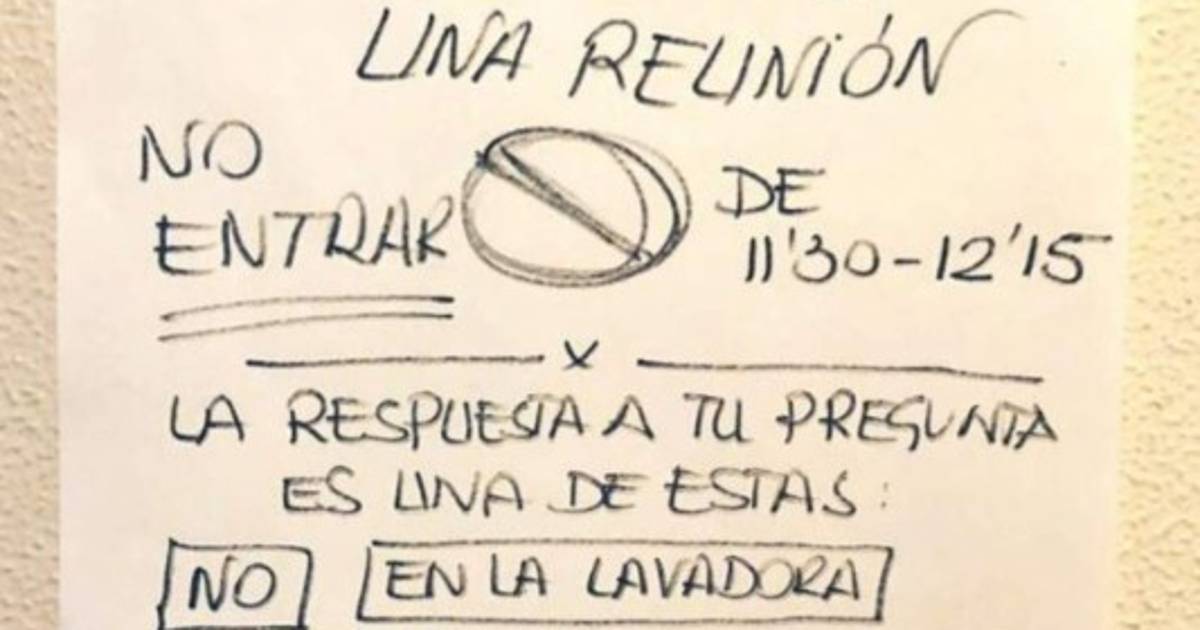 UNA REUNIÓN
NO
ENTRAR
DE
11'30-12'15
X
LA RESPUESTA A TU PREGUNTA
ES UNA DE ESTAS:
NO
EN LA LAVADORA